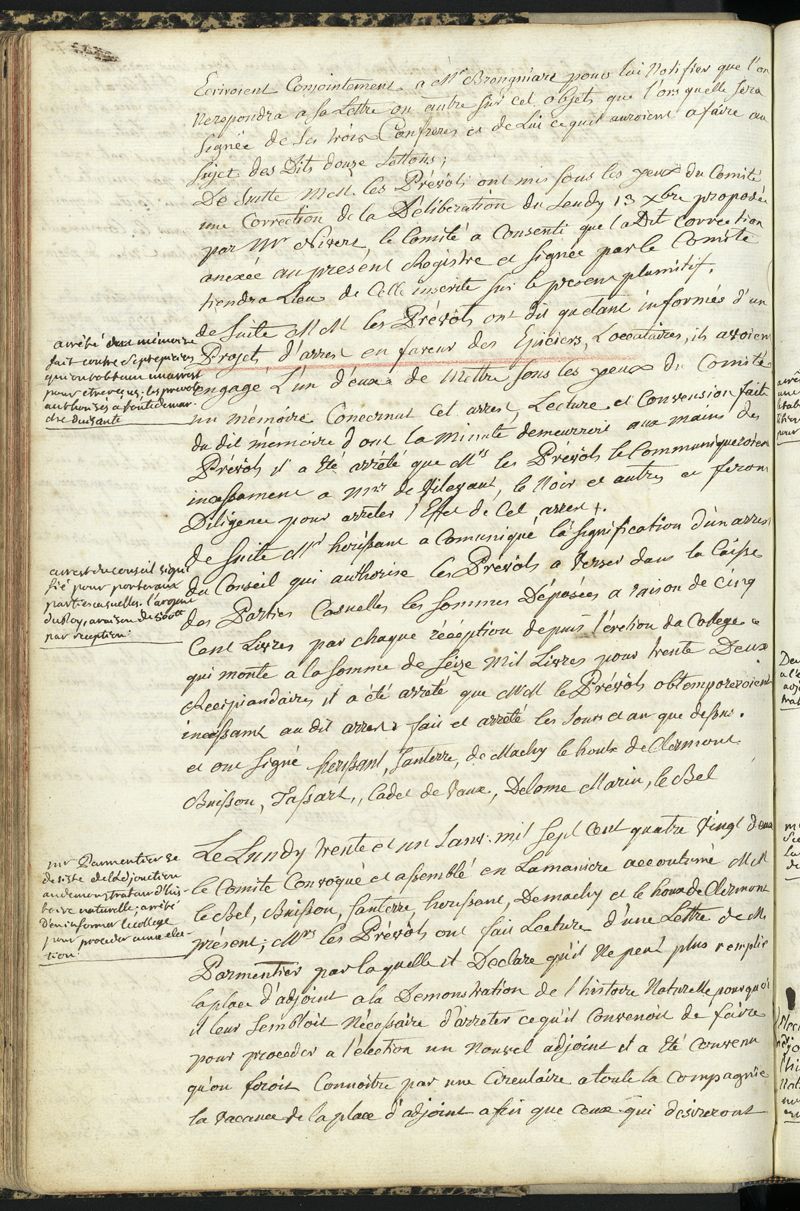 Ecriroient Conjointement a Mr Brongniart pour lui Notifier que l'on
Nerepondra a sa Lettre ou autre sur cet objets que l'ors quelle sera
Signée de Ses trois Confreres et de Lui ce quil auroient a faire au
Sujet des Dits douze
De Suitte MM. les Prévôts ont mis sous les yeux du Comité
une Correction de la Déliberation du Lundy 13 Xbre proposée
par Mr Nivert, le Comité a Consenti que la Dit Correction
anexéé au présent Registre et signée par le Comité
tiendra Lieu de Celle inscrite sur le present plumitif.
de Suite MM les Prévôts ont dit qu'etant informés d'un
Projet d'arrest en faveur des Epiciers, Locataires, ils avoient
engagé L'un d'eux de Mettre sous les yeux du Comité
un mémoire Concernant Cet arrest, Lecture et Convension faite
du dit memoire dont la Minute demeurrera aux mains des
Prévôts il a été arrété que Mrs les Prévôts le Communiqueroient
incessament a Mrs de Vilevaut, le Noir et autres et feront
Diligence pour arreter l'Effet de Cet arrest.
de Suite Mr herissant a Comuniqué la Signification d'un arrest
du Conseil qui authorise les Prévôts a Verser dans la Caisse
des Parties Casuelles les Sommes Déposées a raison de Cinq
Cent Livres par chaque récéption depuis l'erection du College ce
qui monte a la somme de Seize Mil Livres pour trente Deux
Recipiandaires il a été arreté que MM le Prévôts obtempereroient
incessamt au dit arrest fait et arrété les Jours et an que dessus.
et ont Signé herissant, Santerre, de Machy le houx de Clermont
Buisson, Tassart, Cadet de Vaux, Delome Marin, le Bel
Le Lundy trente et un Janv. mil Sept Cent quatre Vingt deux
le Comite Convoqué et assemblé en La maniere accoutumé MM
le Bel, Buisson, Santerre herissant, Demachy et le houx de Clermont
présent; Mrs les Prévôts ont fait Lecture d'une Lettre de Mr
Parmentier par laquelle il Declare qu'il Ne peut plus remplir
la place d'adjoint a la Demonstration de l'histoire Naturelle pourquoi
il leur Sembloit Nécessaire d'arreter ce qu'il Convenoit de faire
pour proceder a l'élection un Nouvel adjoint il a Eté Convenu
qu'on feroit Connoitre par une Circulaire a toute la Compagnie
la Vacance de la place d'adjoint afin que Ceux qui desireront
arrété deux mémoire
fait contre
qui on obtenu un arrest
pour les prevots
authorisés a faire demar
che Suivante
arrest du conseil signi
fié pour porter aux
parties casuelles l'argent
du Roy, a raison de 500tt
par reception
mr Parmentier se
desiste de l'adjonction
au demonstrateur d'his
toire naturelle; arrété
d'en informer le college
pour proceder a une elec
tion